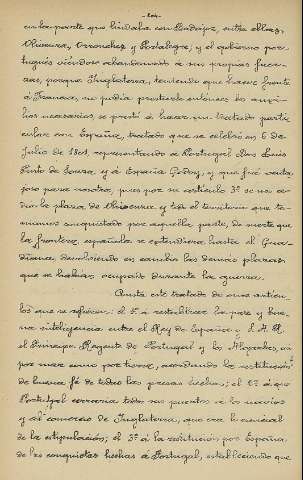 en la parte que lindaba con Badajoz, entre ellas,
Olivenza, Arronches y Portalegre; y el gobierno por-
tugués viéndose abandonado á sus propias fuer-
zas, porque Inglaterra, teniendo que hacer frente
á Francia, no podía prestarle entónces los auxi-
lios necesarios, se prestó á hacer un tratado parti-
cular con España, tratado que se celebró en 6 de
Julio de 1801, representando á Portugal Don Luis
Pinto de Sousa, y á España Godoy, y que fué venta-
joso para nosotros, pues por su artículo 3º se nos ce-
dio la plaza de Olivenza y todo el territorio que te-
niamos conquistado por aquella parte, de suerte que
la frontera española se extendiera hasta el Gua-
diana, devolviendo en cambio las demás plazas
que se habian ocupado durante la guerra.
Consta este tratado de once artícu-
los que se refieren: el 1º á restablecer la paz y bue-
na inteligencia entre el Rey de España y S. A. R.
el Príncipe Regente de Portugal y los Algarbes, así
por mar como por tierra, acordando la restitución
de buena fé de todas las presas hechas; el 2º á que
Portugal cerraria todos sus puertos á los navios
y al comercio de Inglaterra, que era lo esencial
de la estipulación; el 3º á la restitución por España
de las conquistas hechas á Portugal, estableciendo que